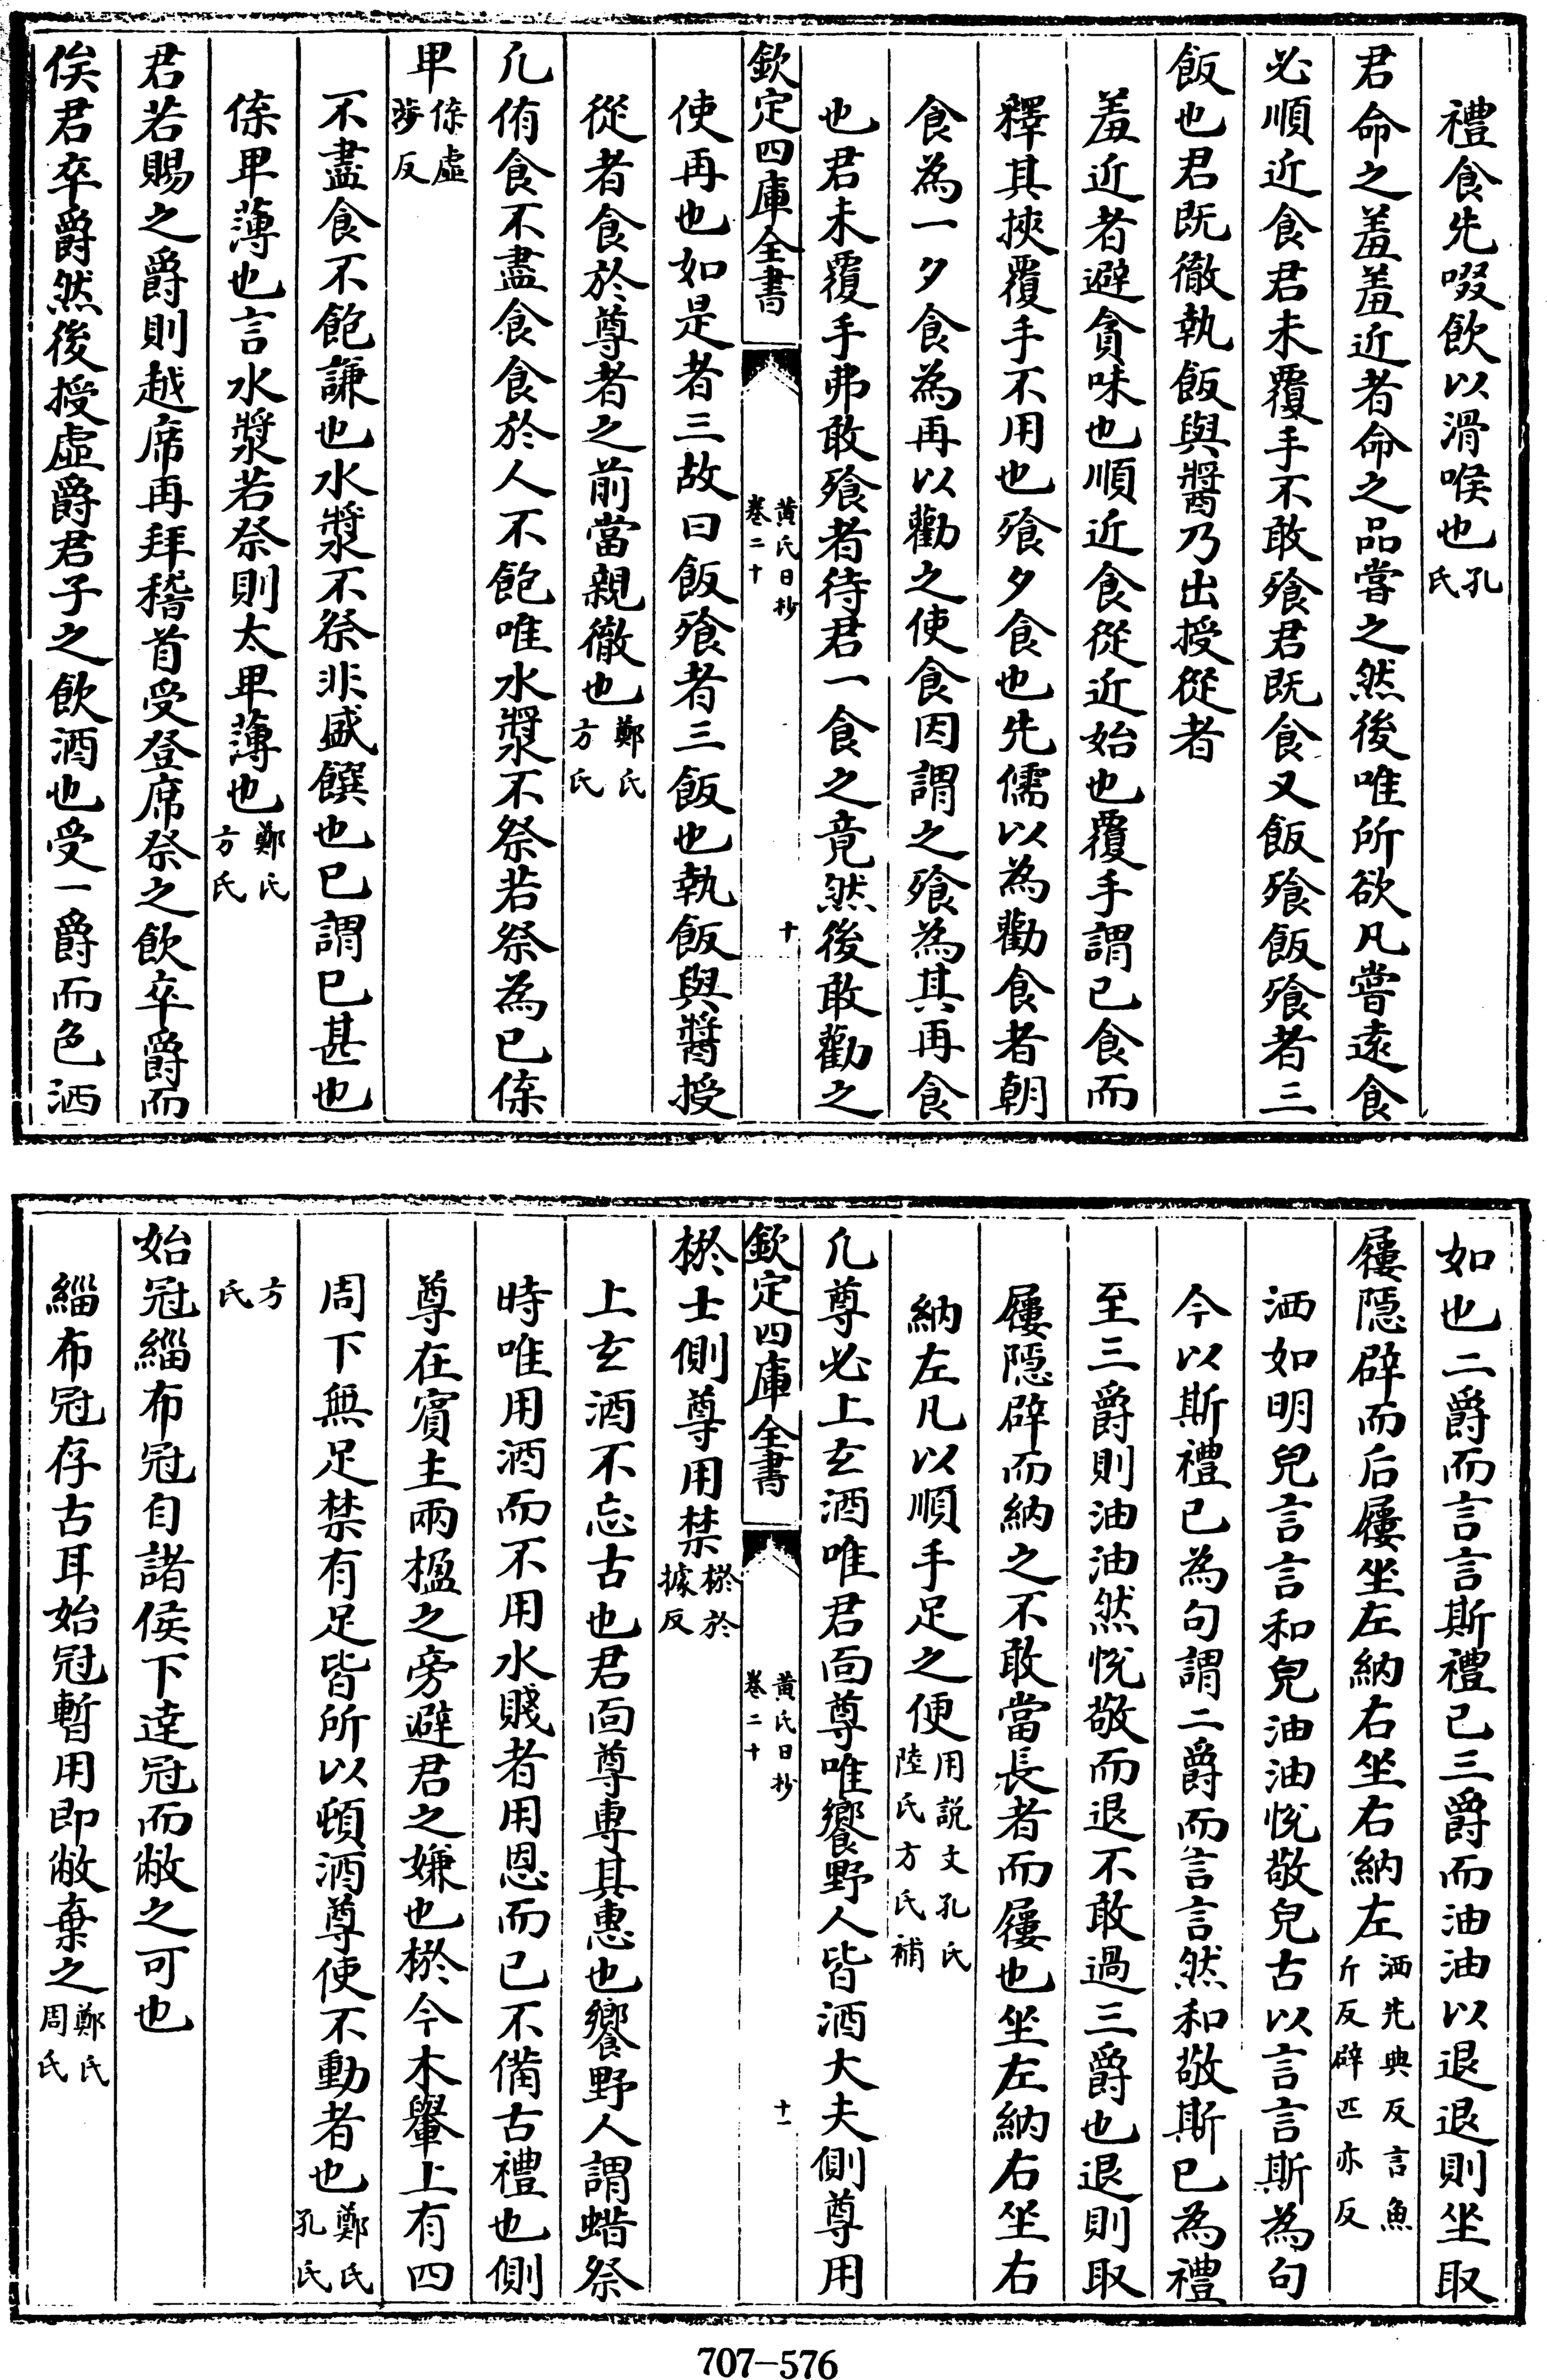 禮食先啜飲以滑喉也孔氏
君命之羞羞近者命之品嘗之然後唯所欲凡嘗遠食
必順近食君未覆手不敢飱君既食又飯飱飯飱者三
飯也君既徹執飯與醬乃出授從者
羞近者避貪味也順近食從近始也覆手謂已食而
釋其挾覆手不用也飱夕食也先儒以為勸食者朝
食為一夕食為再以勸之使食因謂之飱為其再食
也君未覆手弗敢飱者待君一食之竟然後敢勸之
欽定四庫全書
黄氏日抄
卷二十
十
使再也如是者三故曰飯飱者三飯也執飯與醬授
從者食於尊者之前當親徹也鄭氏方氏
凡侑食不盡食食於人不飽唯水漿不祭若祭為已傃
𤰞傃虛涉反
不盡食不飽謙也水漿不祭非盛饌也已謂已甚也
傃𤰞薄也言水漿若祭則太𤰞薄也鄭氏方氏
君若賜之爵則越席再拜稽首受登席祭之飲卒爵而
俟君卒爵然後授虛爵君子之飲酒也受一爵而色洒
如也二爵而言言斯禮已三爵而油油以退退則坐取
屨隠辟而后屨坐左納右坐右納左洒先典反言魚斤反辟匹亦反
洒如明皃言言和皃油油恱敬皃古以言言斯為句
今以斯禮已為句謂二爵而言言然和敬斯已為禮
至三爵則油油然恱敬而退不敢過三爵也退則取
屨隠辟而納之不敢當長者而屨也坐左納右坐右
納左凡以順手足之便用説文孔氏陸氏方氏補
凡尊必上玄酒唯君面尊唯饗野人皆酒大夫側尊用
欽定四庫全書
黄氏日抄
卷二十
十一
棜士側尊用禁棜於據反
上玄酒不忘古也君面尊專其惠也饗野人謂蜡祭
時唯用酒而不用水賤者用恩而已不備古禮也側
尊在賓主兩楹之旁避君之嫌也棜今木轝上有四
周下無足禁有足皆所以頓酒尊使不動者也鄭氏孔氏
方氏
始冠緇布冠自諸侯下逹冠而敝之可也
緇布冠存古耳始冠暫用即敝棄之鄭氏周氏
707-576